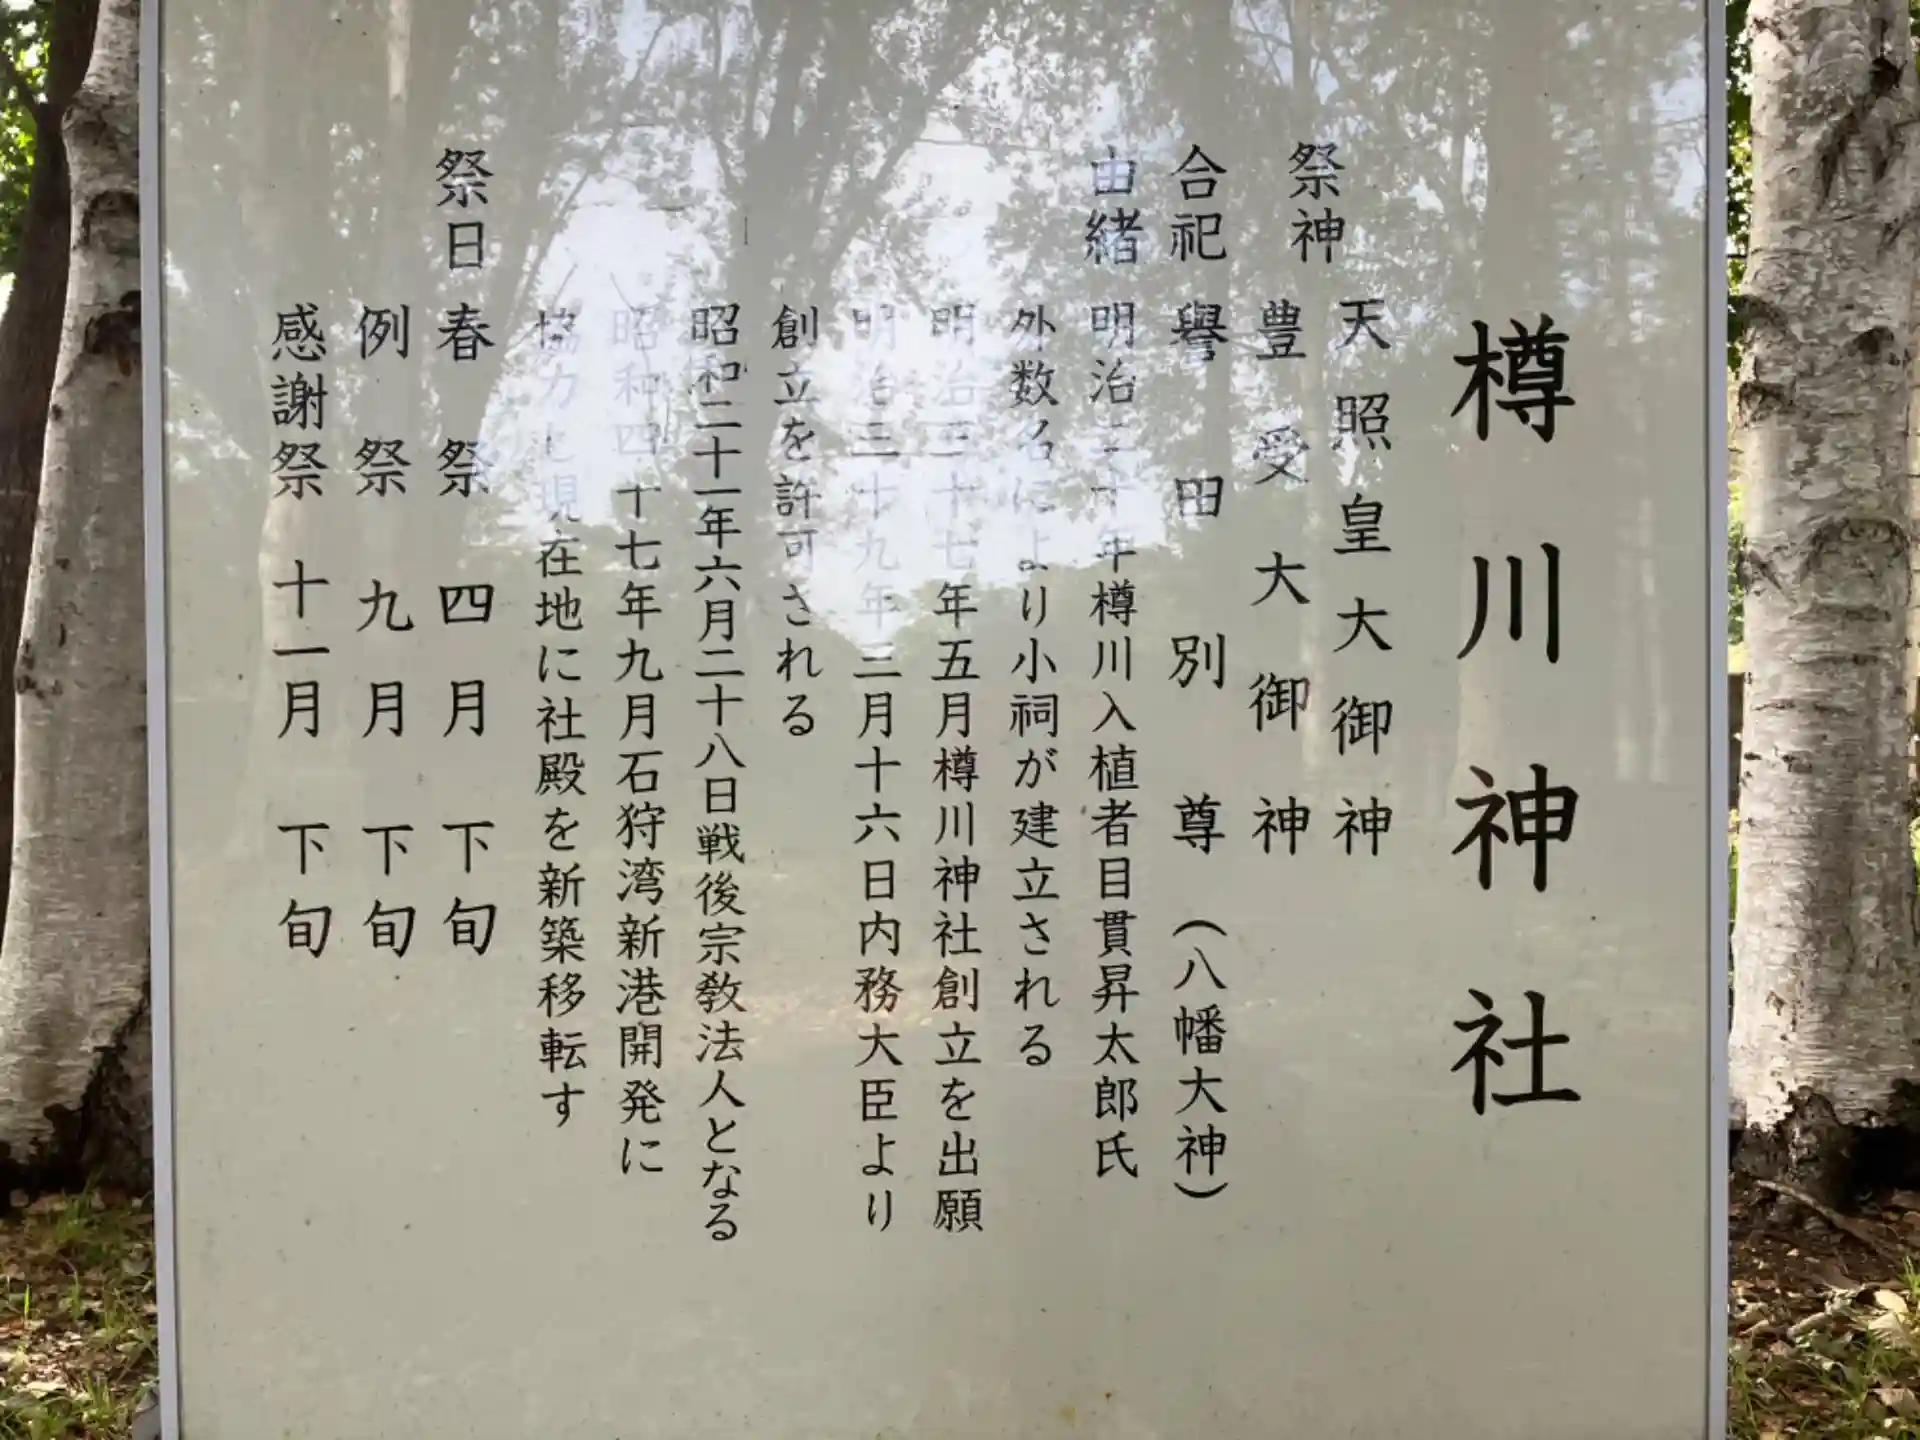 樽川神社
祭神
天照皇大御神
豊受大御神
合祀 譽田別尊(八幡大神)
由緒 明治三十年樽川入植者目貫昇太郎氏
外数名により小祠が建立される
明治三十七年五月樽川神社創立を出願
明治三十九年三月十六日内務大臣より
創立を許可される
昭和二十一年六月二十八日戦後宗教法人となる
昭和四十七年九月石狩湾新港開発に
協力し現在地に社殿を新築移転す
祭日 春祭 四月 下旬
例祭 九月 下旬
感謝祭 十一月 下旬